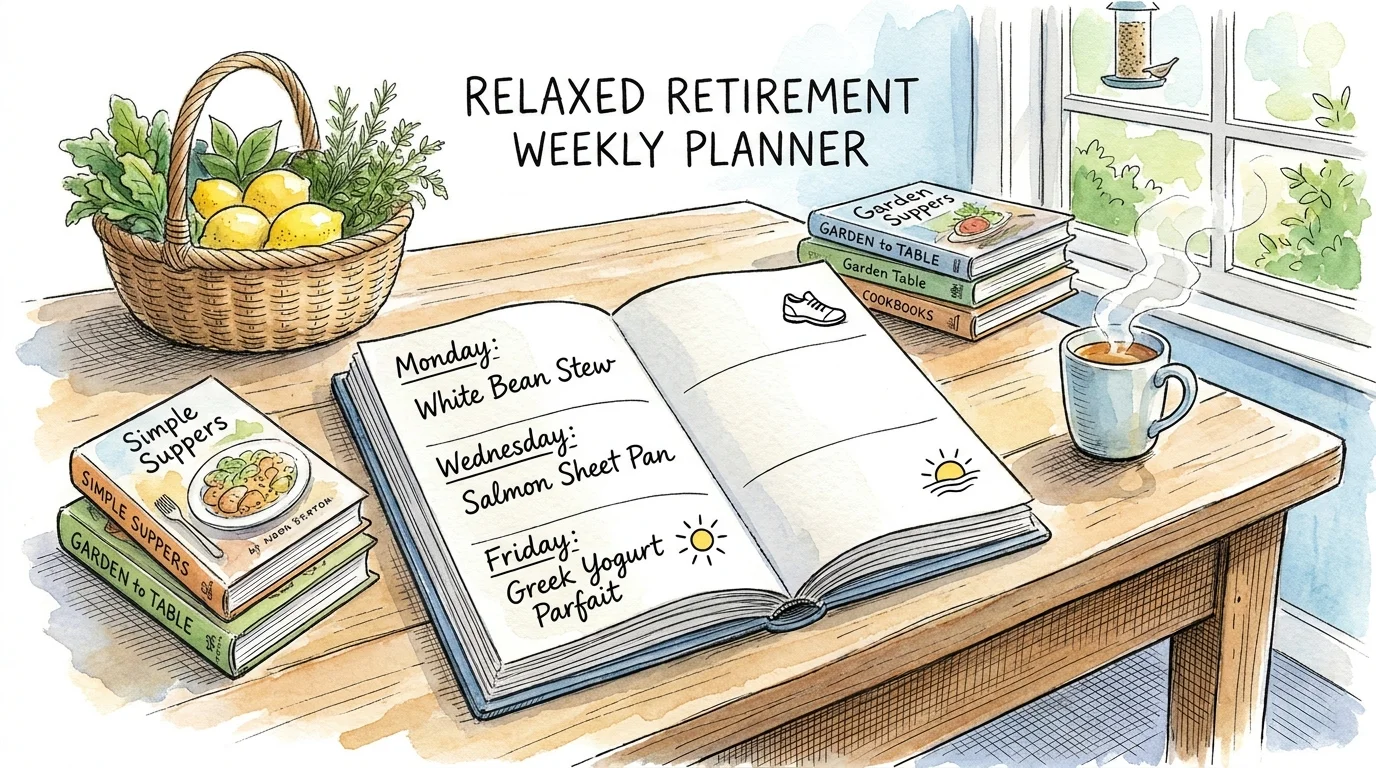 RELAXED RETIREMENT
WEEKLY PLANNER
Garden
Suppers
GARDEN to TABLE
Garden Table
COOKBOOKS
Monday:
White Bean Stew
Wednesday:
Salmon Sheet Pan
Friday:
Greek Yogurt
Parfait
Simple
Suppers
by
SIMPLE SUPPERS
GARDEN to TABLE